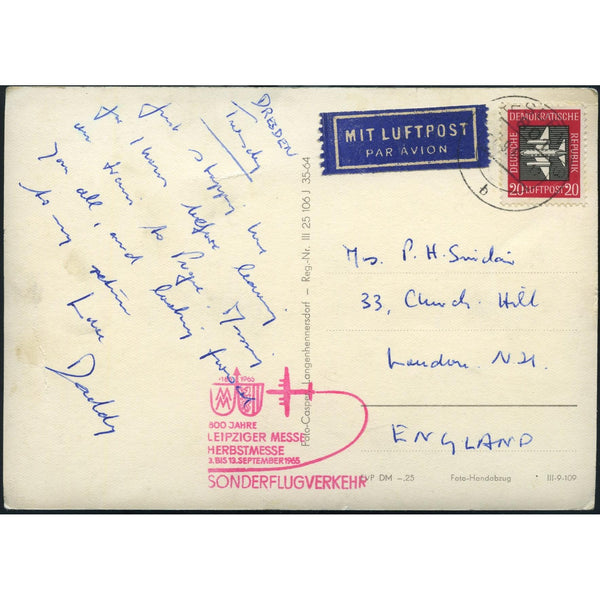 DRESDEN
Tuesday
Just stopping here
for 1 hour before leaving
on train to Prague. Missing
you all, and looking forward
to my return
Love Daddy
MIT LUFTPOST
PAR AVION
DEUTSCHE
DEMOKRATISCHE
REPUBLIK
20 LUFTPOST 20
b
Mrs. P. H. Sinclair
33, Church Hill
London. N.21.
ENGLAND
Foto-Caspar, Langenhennersdorf – Reg.-Nr. III 25 106 J 35-64
1965
800 JAHRE
LEIPZIGER MESSE
HERBSTMESSE
BIS 13. SEPTEMBER 1965
SONDERFLUGVERKEHR
EVP DM –.25 Foto-Handabzug III-9-109